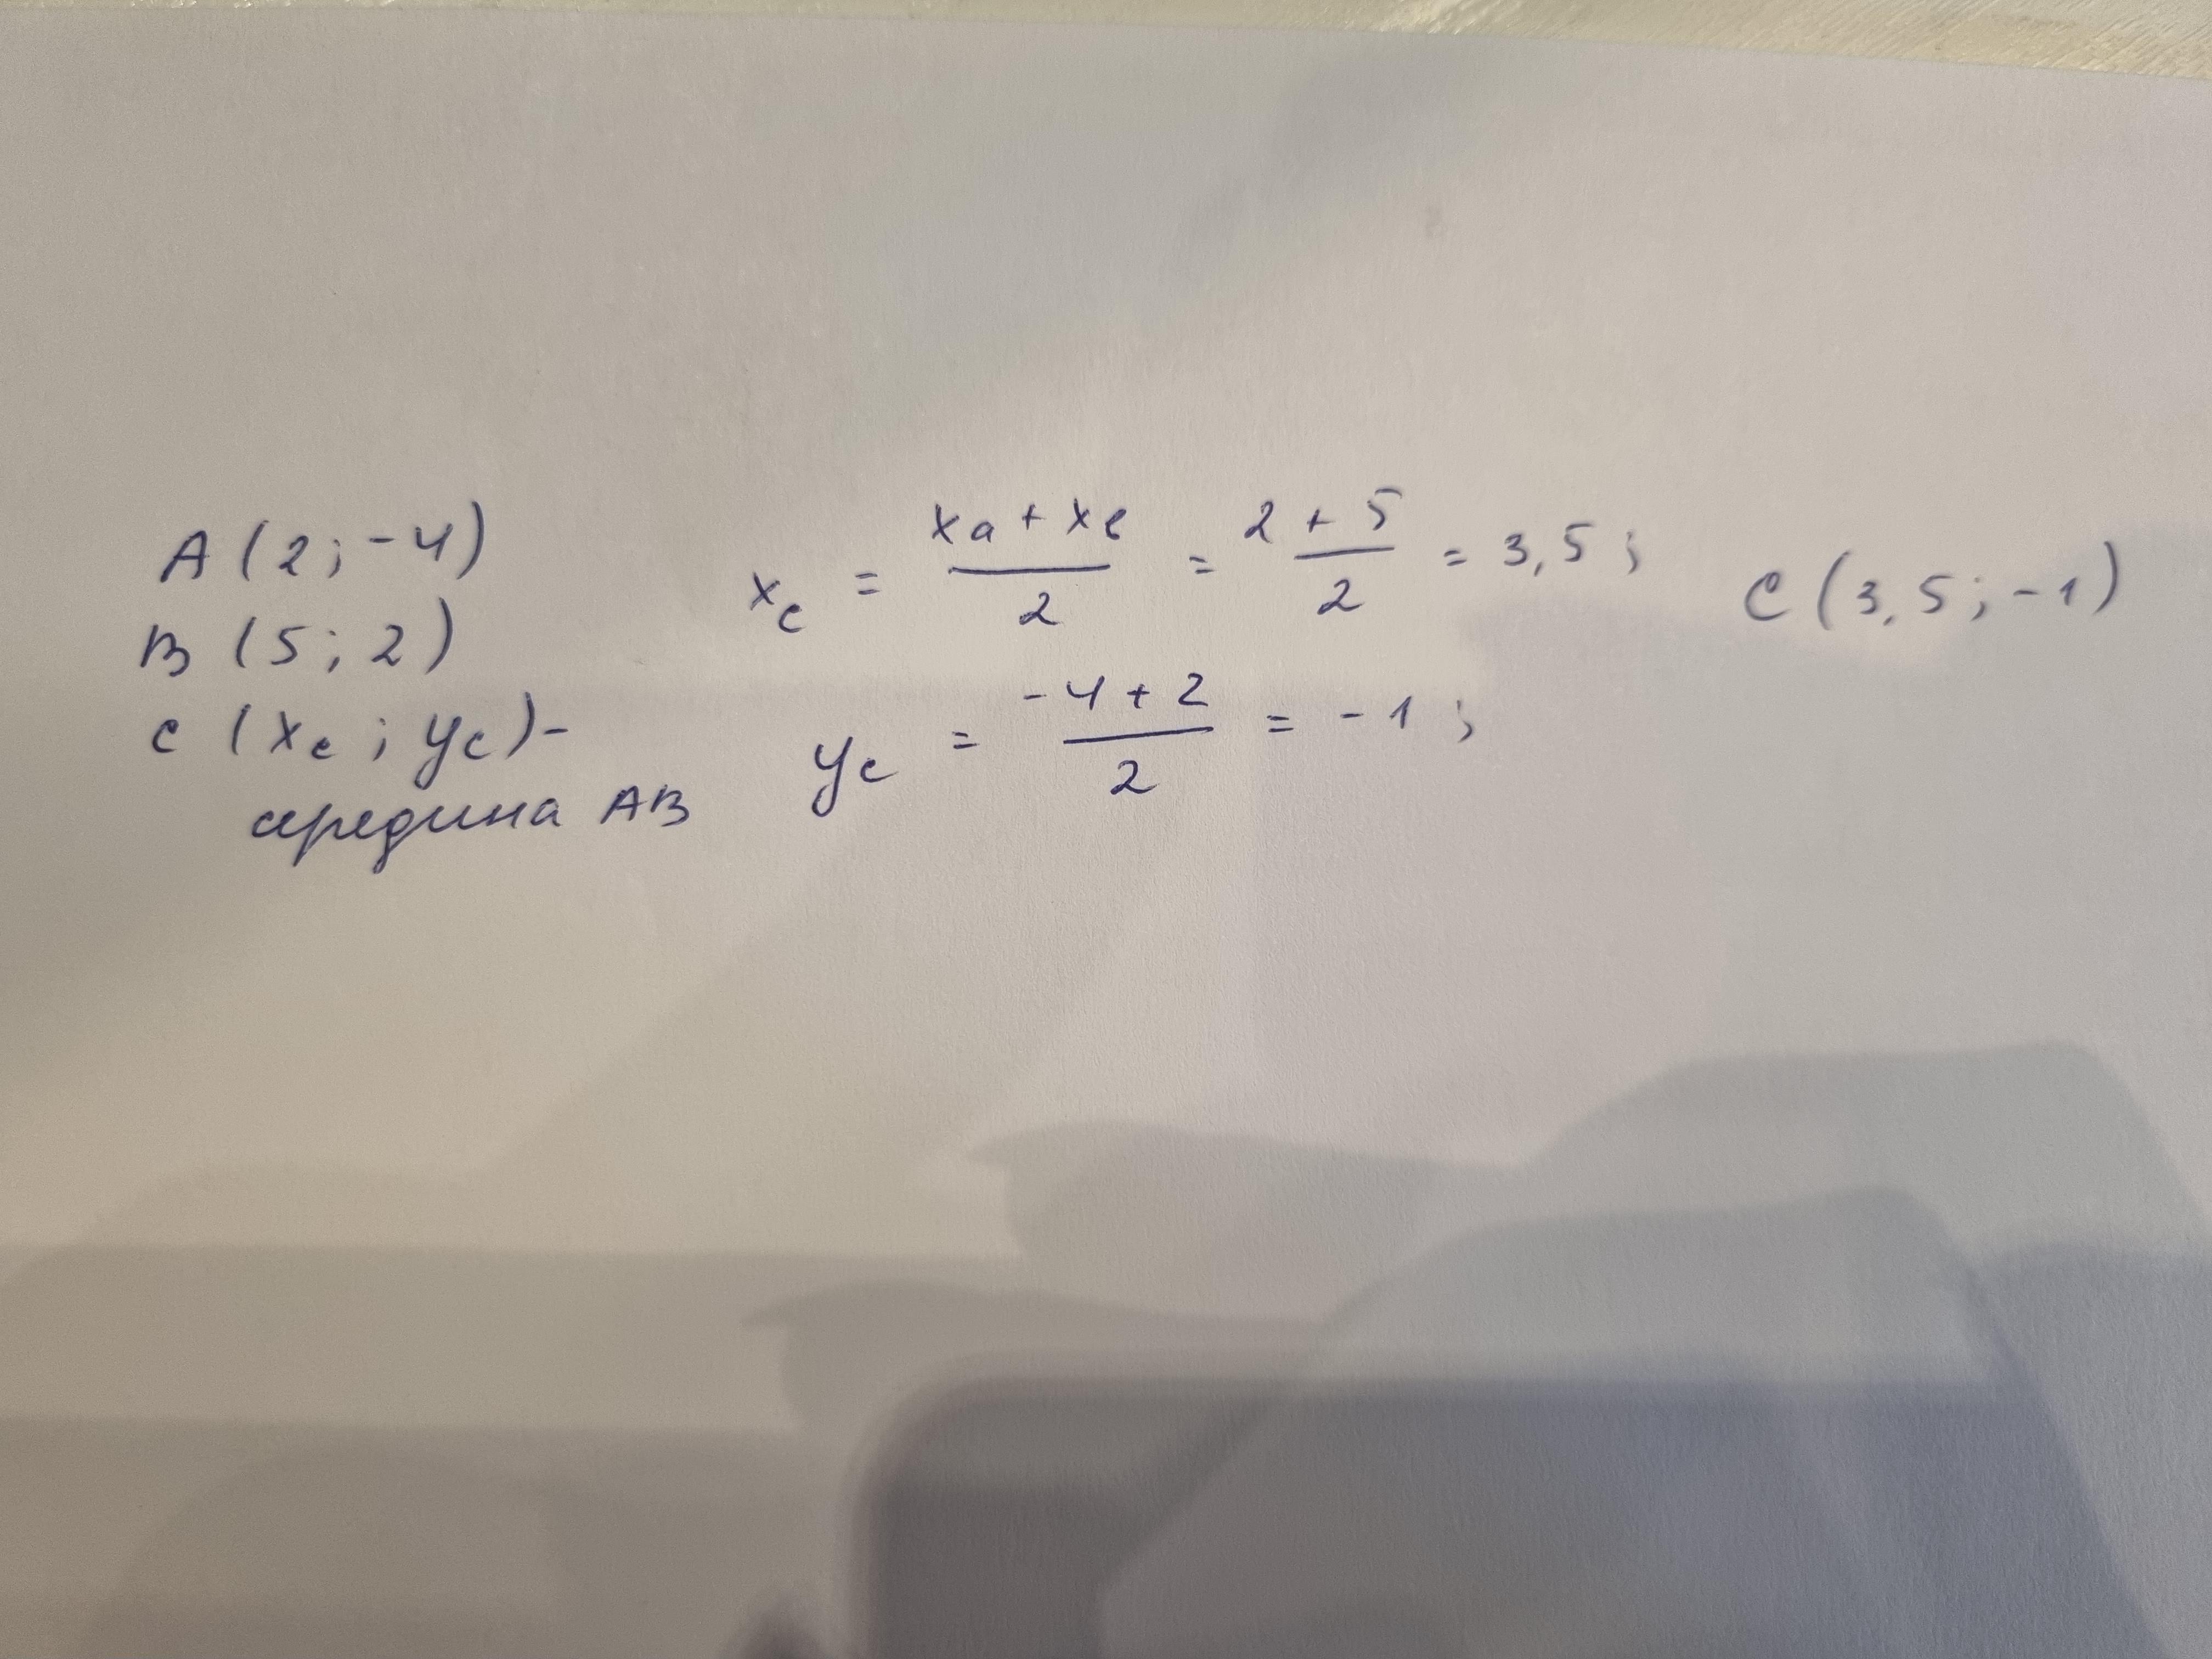 A (2; -4)
B (5; 2)
C (x_c; y_c) -
середина AB
x_c = (x_a + x_в)/2 = (2 + 5)/2 = 3,5;
y_c = (-4 + 2)/2 = -1;
C (3,5; -1)